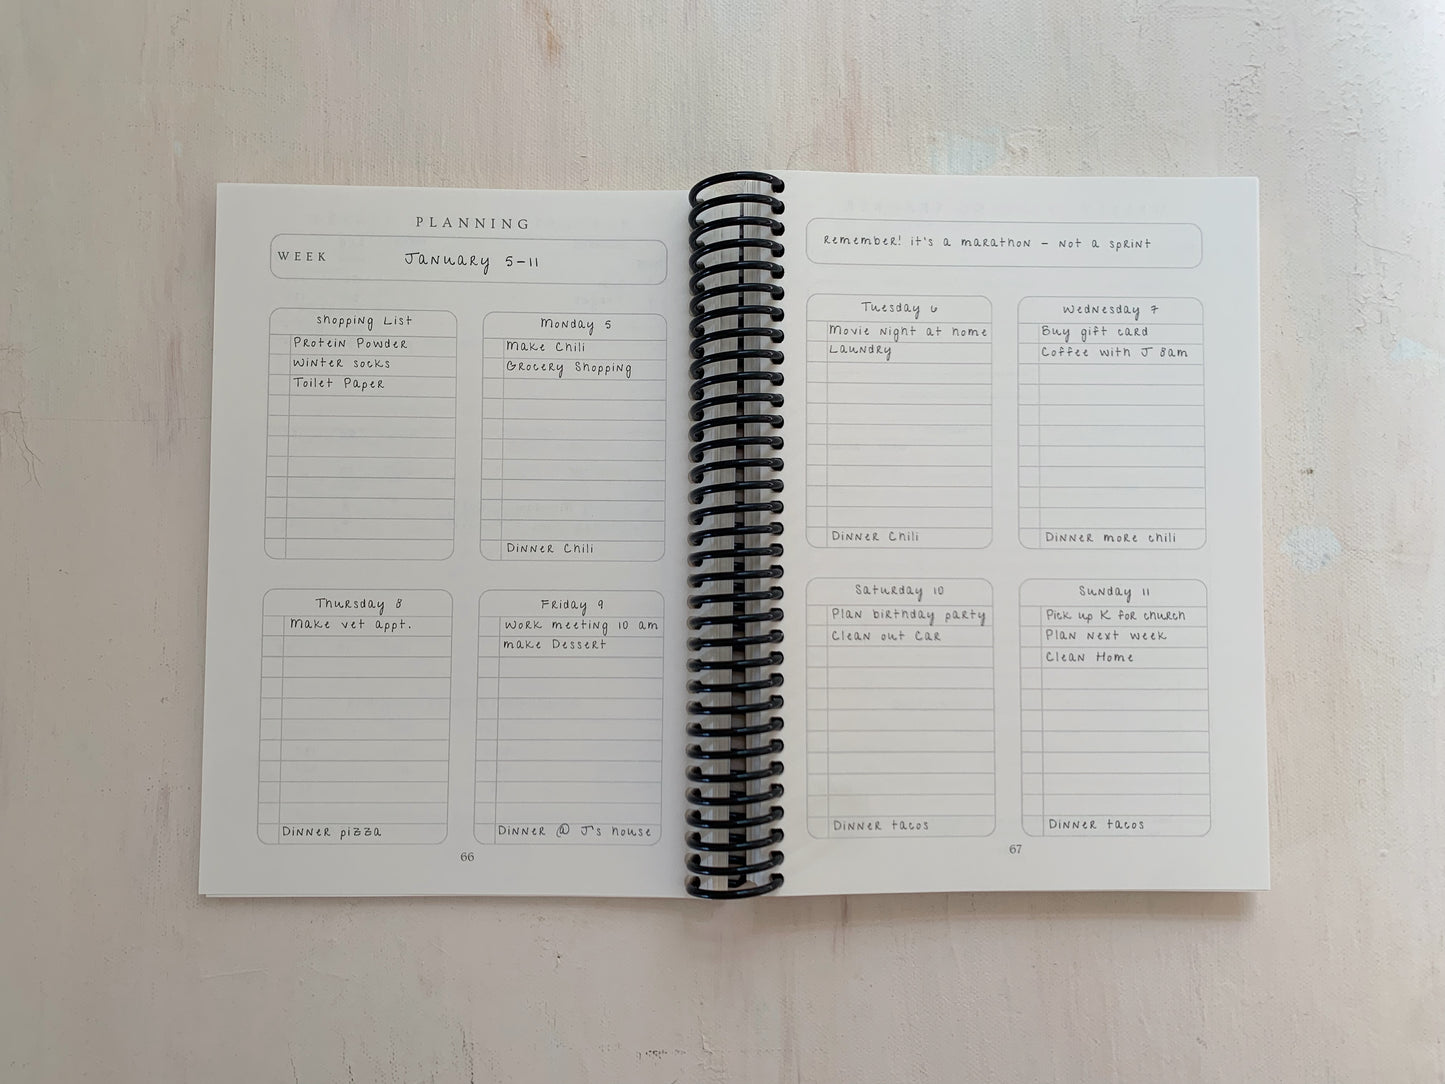 PLANNING
WEEK January 5-11
Shopping List
Protein Powder
Winter socks
Toilet Paper
Monday 5
Make Chili
Grocery Shopping
Dinner Chili
Thursday 8
Make vet appt.
Dinner pizza
Friday 9
Work meeting 10 am
make Dessert
Dinner @ J's house
66
Remember! it's a marathon - not a sprint
Tuesday 6
Movie night at home
Laundry
Dinner Chili
Wednesday 7
Buy gift card
Coffee with J 8am
Dinner more chili
Saturday 10
Plan birthday party
Clean out Car
Dinner tacos
Sunday 11
Pick up K for church
Plan next week
Clean Home
Dinner tacos
67